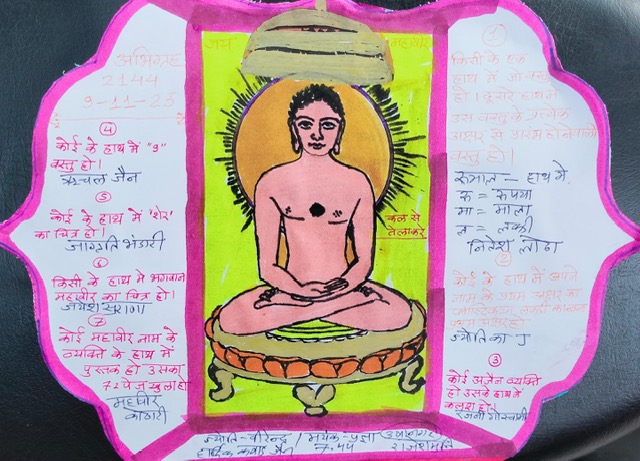 जय महावीर
अभिग्रह
2144
9-11-23
④
कोई के हाथ में "3"
वस्तु हो।
जैन
⑤
कोई के हाथ में 'शेर'
का चित्र हो।
जागृति भंडारी
⑥
किसी के हाथ में भगवान
महावीर का चित्र हो।
जयेश सुराणा
⑦
कोई महावीर नाम के
व्यक्ति के हाथ में
पुस्तक हो उसका
72 पेज खुला हो
महावीर
कोठारी
कल से
तेला करे
①
किसी के एक
हाथ में जो वस्तु
हो। दूसरे हाथ में
उस वस्तु के प्रत्येक
अक्षर से प्रारंभ होनेवाली
वस्तु हो।
रुमाल - हाथ में
रू = रूपया
मा = माला
ल = लकी
नितेश लोढा
②
कोई के हाथ में अपने
नाम के प्रथम अक्षर का
ज्योतिका J
③
कोई अजैन व्यक्ति
हो उसके हाथ में
कलश हो।
रजनी गोस्वामी
ज्योति-वीरेन्द्र / मयंक-प्रज्ञा
हार्दिक जैन 7.44 राजेशमुनि